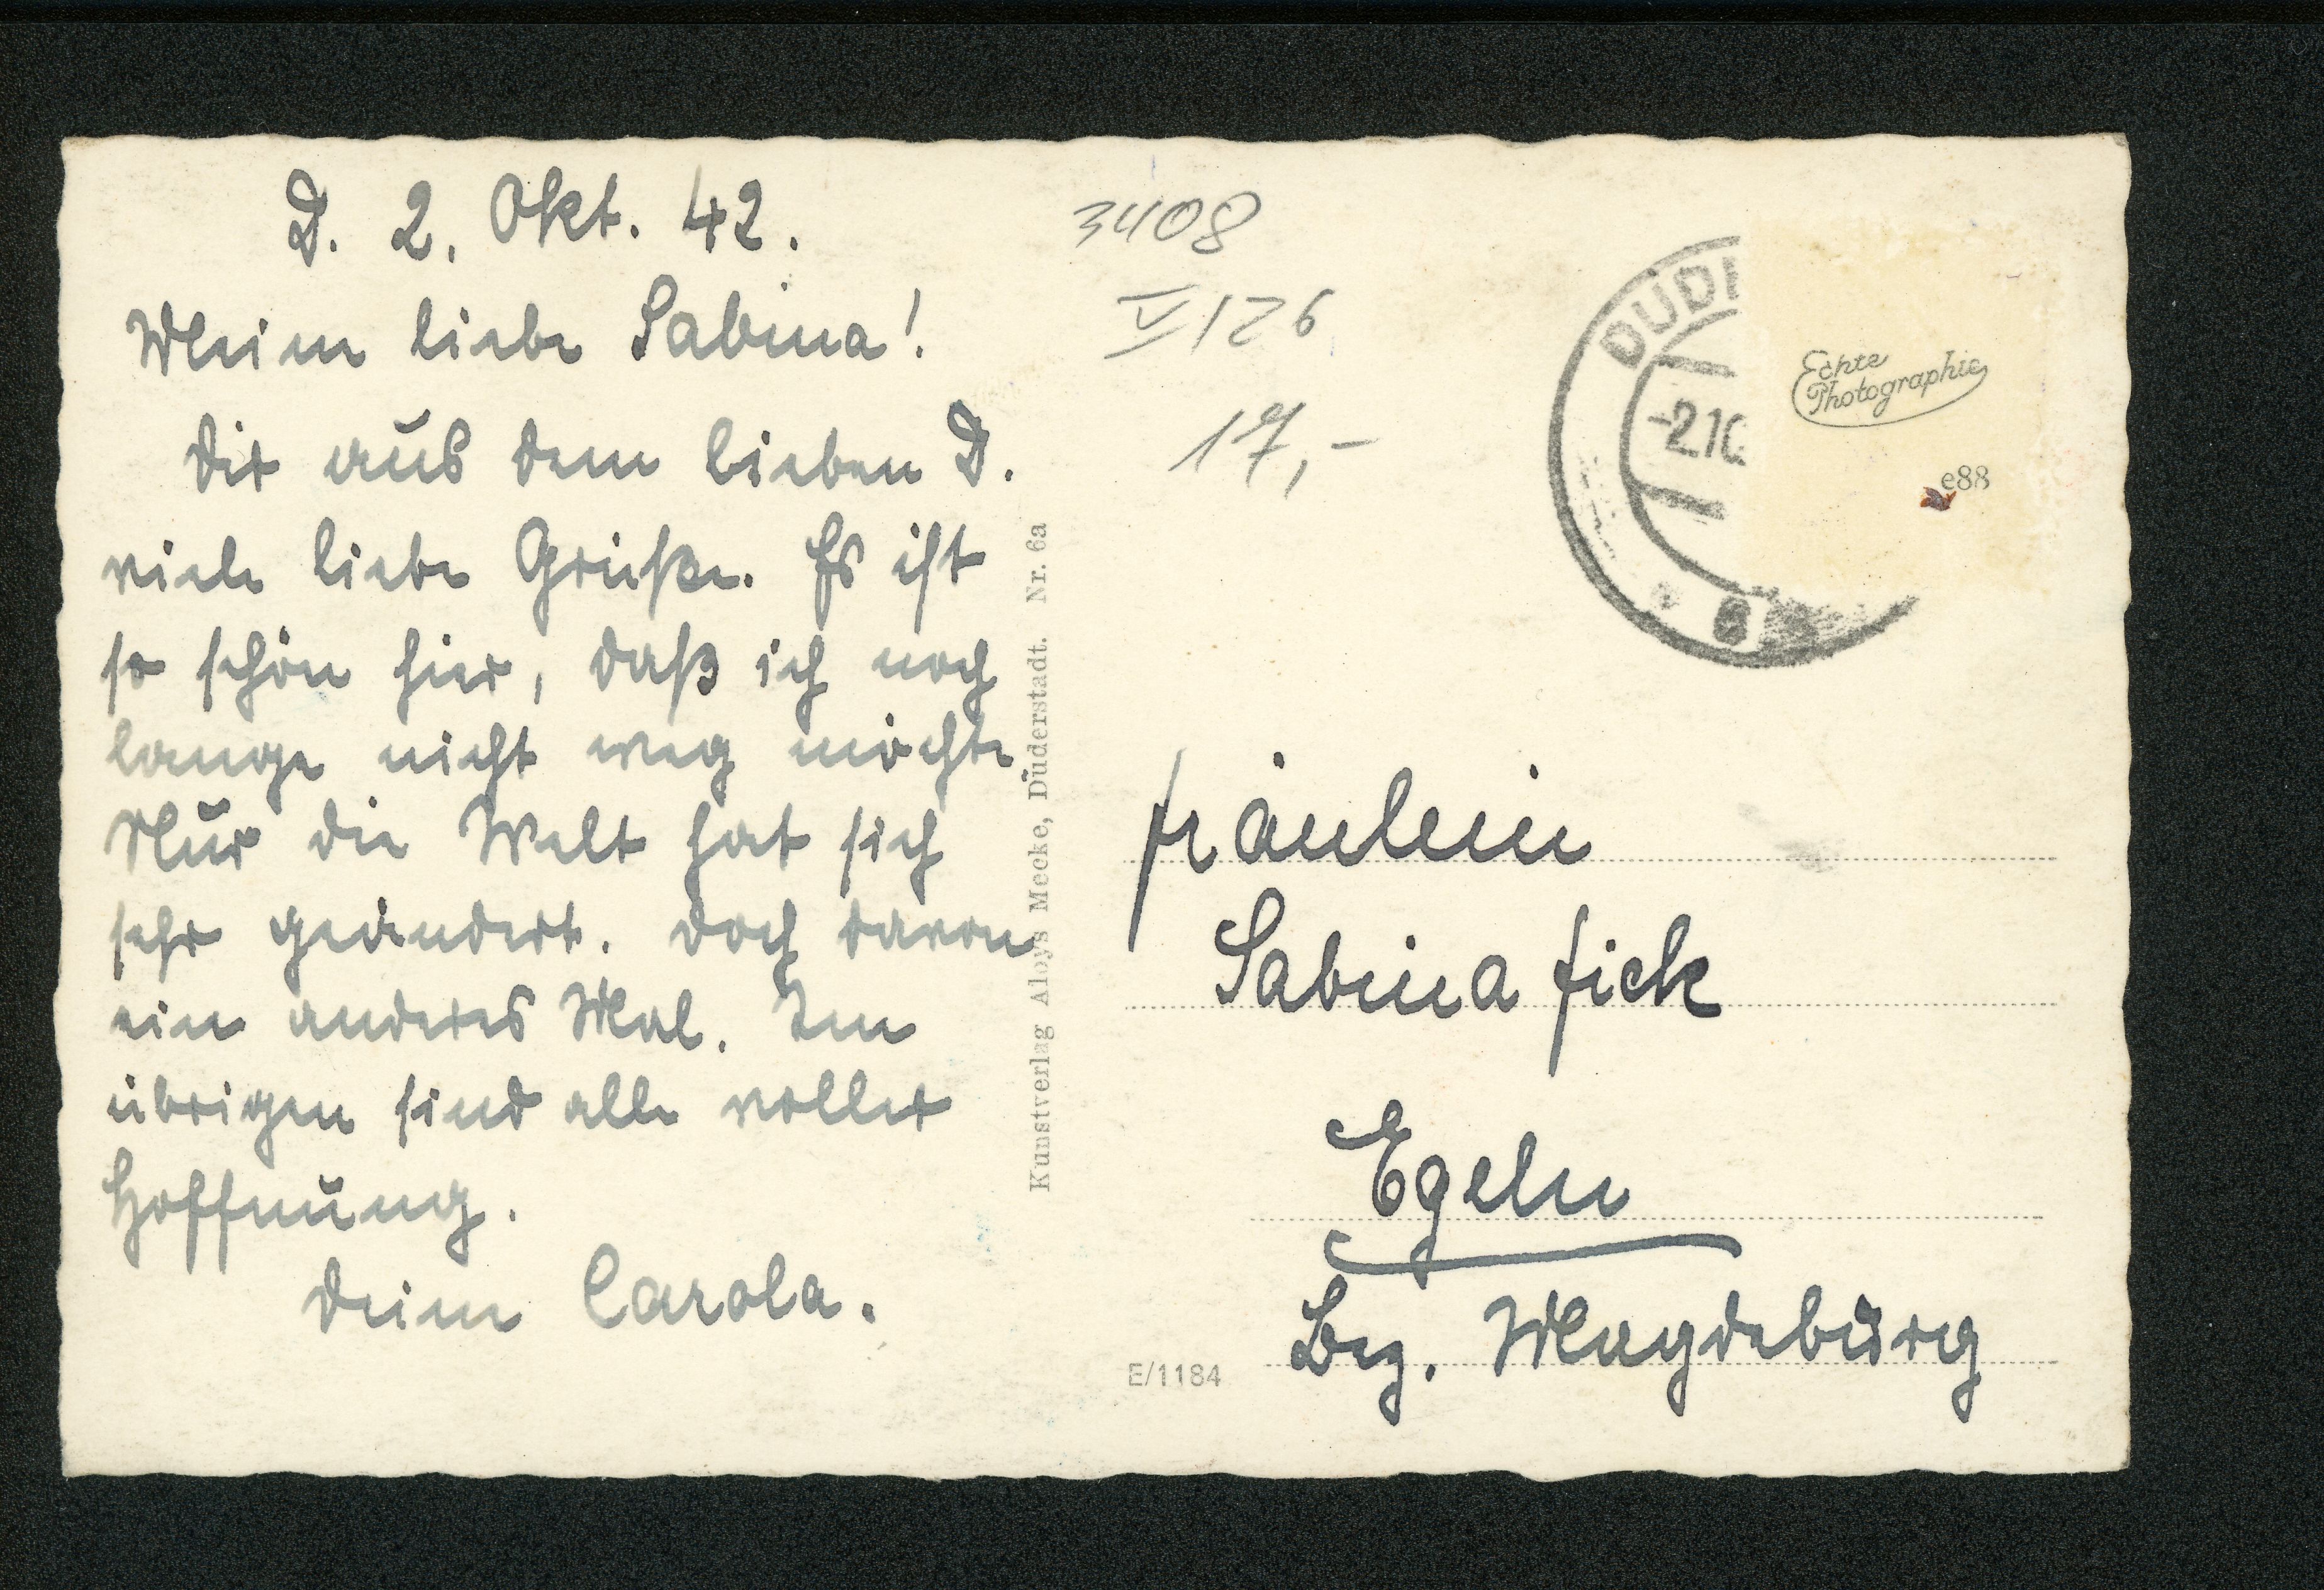 D. 2. Okt. 42.
Meine liebe Sabina!
Dir aus dem lieben D.
viele liebe Grüße. Es ist
so schön hier, daß ich noch
lange nicht weg möchte.
Nur die Welt hat sich
sehr geändert. Doch davon
ein anderes Mal. Im
übrigen sind alle voller
Hoffnung.
Deine Carola.
Kunstverlag Aloys Mecke, Duderstadt. Nr. 6a
3408
V 126
17,-
DUDE
-2.10
Echte
Photographie
e88
Fräulein
Sabina Fick
Egeln
Bez. Magdeburg
E/1184